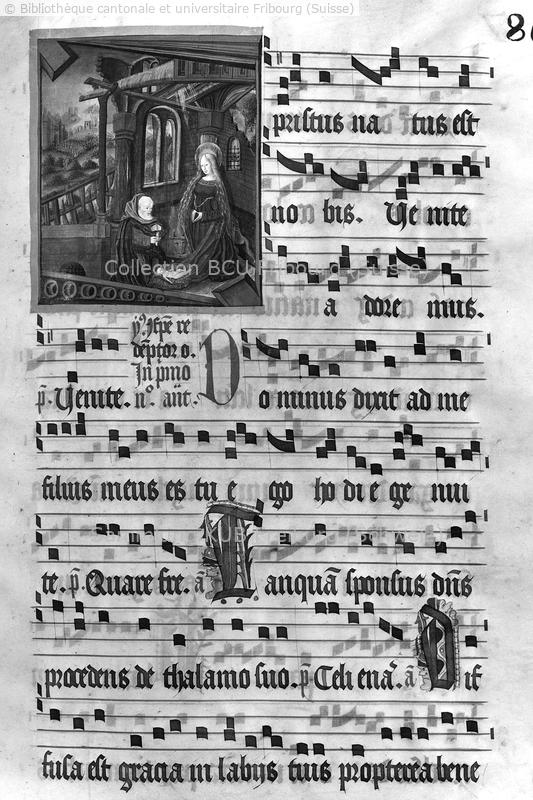 © Bibliothèque cantonale et universitaire Fribourg (Suisse)
pristus na tus est
no bis. Venite
Collection BCU Fribourg
a dore mus.
xp̄e re
demptor o.
In pmo
p̄. Venite. n°. añt. D
o minus dixit ad me
filius meus es tu e go ho di e ge nui
te. p̄. Quare fre. ā T anquā sponsus dn̄s
procedens de thalamo suo. p̄ Celi enar̄. ā D if
fusa est gracia in labijs tuis propterea bene